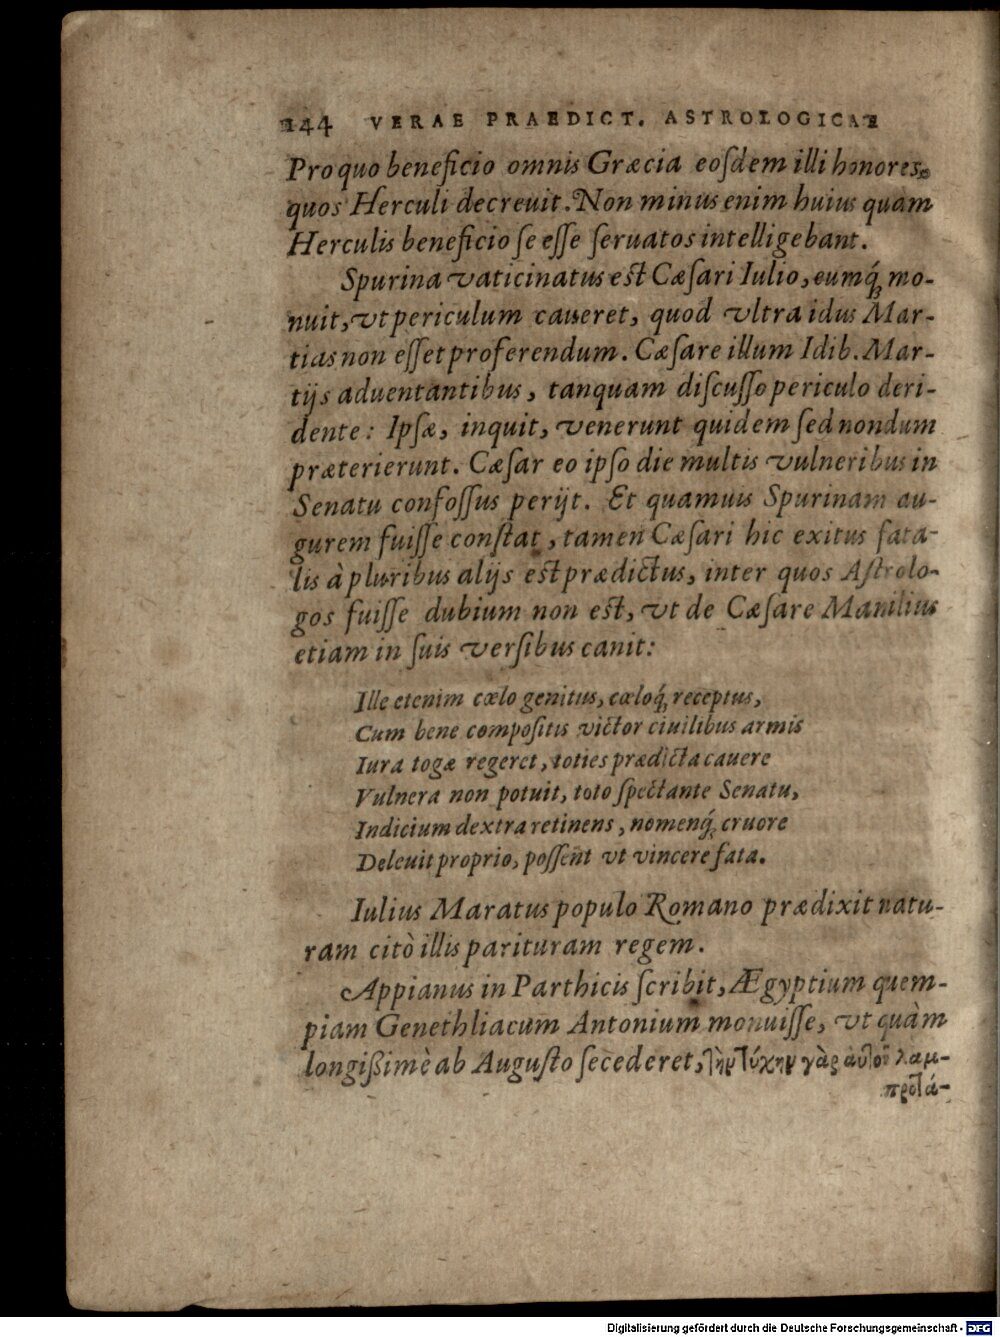 144 VERAE PRAEDICT. ASTROLOGICAE
Pro quo beneficio omnis Græcia eoſdem illi honores,
quos Herculi decreuit. Non minus enim huius quam
Herculis beneficio ſe eſſe ſeruatos intelligebant.
Spurina vaticinatus est Cæſari Iulio, eumq́; mo-
nuit, vt periculum caueret, quod vltra idus Mar-
tias non eſſet proferendum. Cæſare illum Idib. Mar-
tijs aduentantibus, tanquam diſcuſſo periculo deri-
dente: Ipſæ, inquit, venerunt quidem ſed nondum
præterierunt. Cæſar eo ipſo die multis vulneribus in
Senatu confoſſus perijt. Et quamuis Spurinam au-
gurem fuiſſe conſtat, tamen Cæſari hic exitus fata-
lis à pluribus alijs est prædictus, inter quos Aſtrolo-
gos fuiſſe dubium non est, vt de Cæſare Manilius
etiam in ſuis verſibus canit:
Ille etenim cœlo genitus, cœloq́; receptus,
Cum bene compoſitis victor ciuilibus armis
Iura togæ regeret, toties prædicta cauere
Vulnera non potuit, toto ſpectante Senatu,
Indicium dextra retinens, nomenq́; cruore
Deleuit proprio, poſſent vt vincere fata.
Iulius Maratus populo Romano prædixit natu-
ram citò illis parituram regem.
Appianus in Parthicis ſcribit, Ægyptium quem-
piam Genethliacum Antonium monuiſſe, vt quàm
longißimè ab Auguſto ſecederet, τὴν τύχην γὰρ αὐτοῦ λαμ-
προτά-
Digitalisierung gefördert durch die Deutsche Forschungsgemeinschaft - DFG